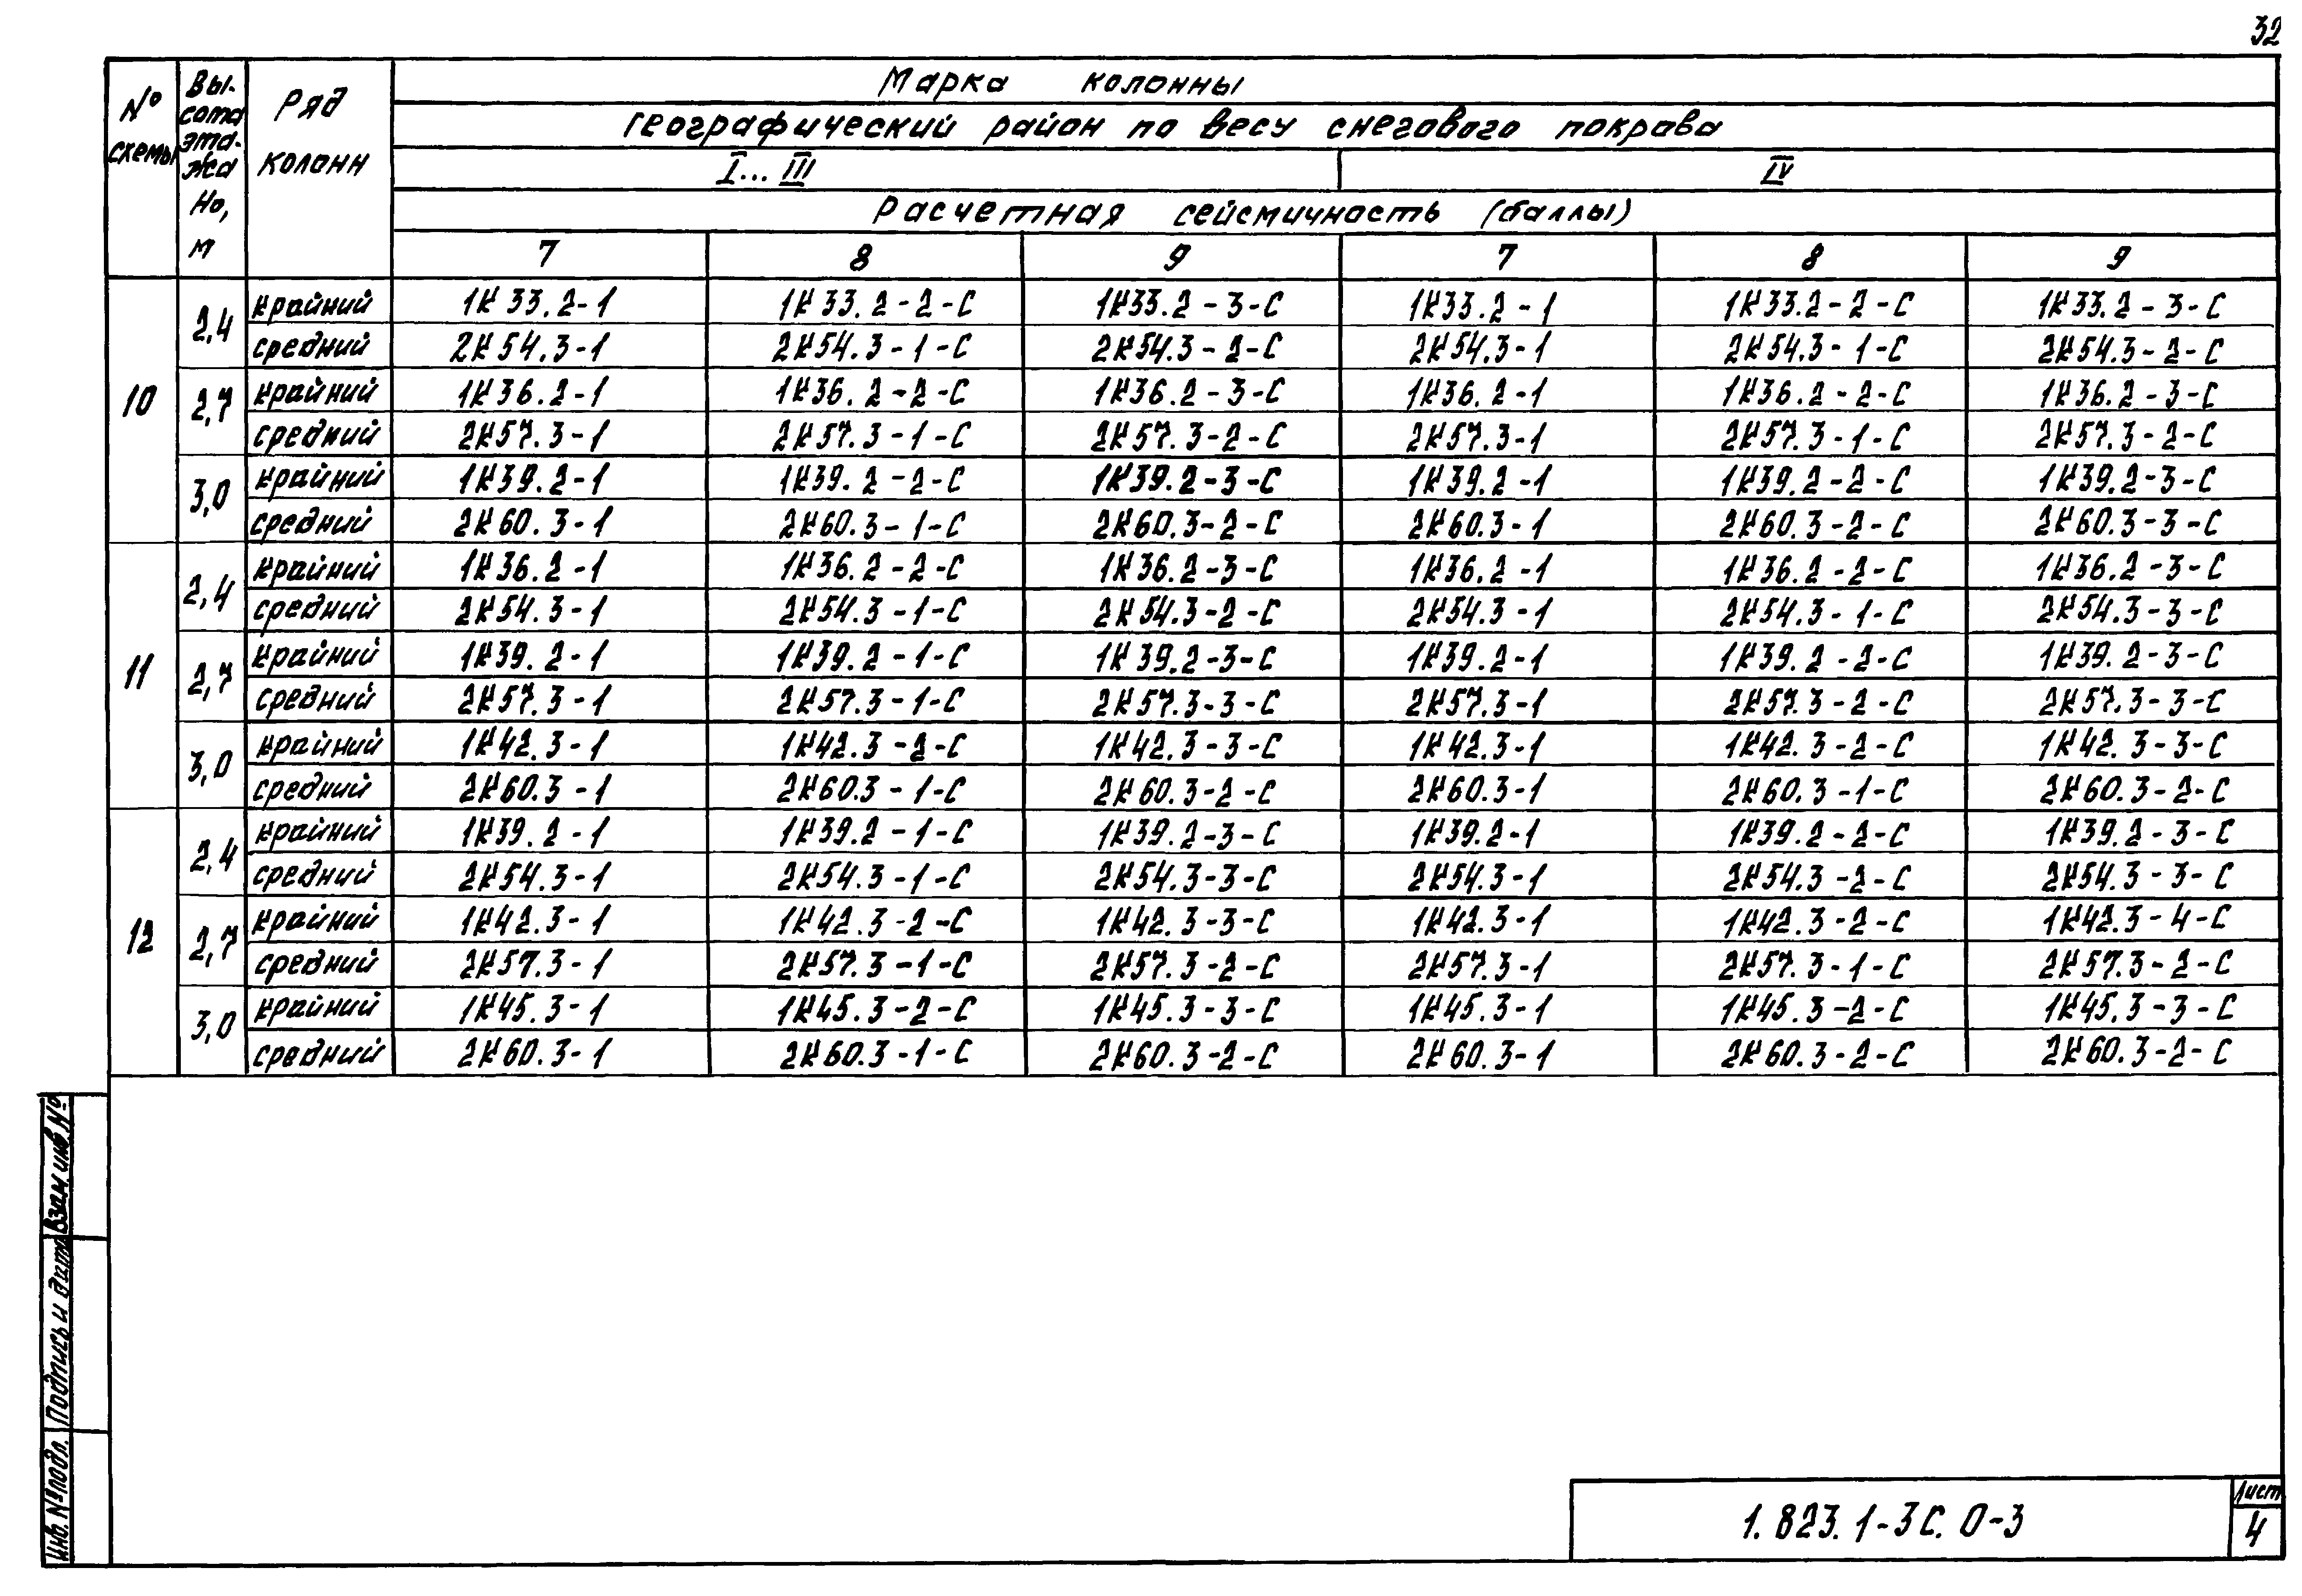 32
№ схемы | Вы-сота эта-жа Но, м | Ряд колонн | Марка колонны
Географический район по весу снегового покрова
I... III | IV
Расчетная сейсмичность (баллы)
7 | 8 | 9 | 7 | 8 | 9
10 | 2,4 | крайний | 1К33.2-1 | 1К33.2-2-С | 1К33.2-3-С | 1К33.2-1 | 1К33.2-2-С | 1К33.2-3-С
средний | 2К54.3-1 | 2К54.3-1-С | 2К54.3-2-С | 2К54.3-1 | 2К54.3-1-С | 2К54.3-2-С
2,7 | крайний | 1К36.2-1 | 1К36.2-2-С | 1К36.2-3-С | 1К36.2-1 | 1К36.2-2-С | 1К36.2-3-С
средний | 2К57.3-1 | 2К57.3-1-С | 2К57.3-2-С | 2К57.3-1 | 2К57.3-1-С | 2К57.3-2-С
3,0 | крайний | 1К39.2-1 | 1К39.2-2-С | 1К39.2-3-С | 1К39.2-1 | 1К39.2-2-С | 1К39.2-3-С
средний | 2К60.3-1 | 2К60.3-1-С | 2К60.3-2-С | 2К60.3-1 | 2К60.3-2-С | 2К60.3-3-С
11 | 2,4 | крайний | 1К36.2-1 | 1К36.2-2-С | 1К36.2-3-С | 1К36.2-1 | 1К36.2-2-С | 1К36.2-3-С
средний | 2К54.3-1 | 2К54.3-1-С | 2К54.3-2-С | 2К54.3-1 | 2К54.3-1-С | 2К54.3-3-С
2,7 | крайний | 1К39.2-1 | 1К39.2-1-С | 1К39.2-3-С | 1К39.2-1 | 1К39.2-2-С | 1К39.2-3-С
средний | 2К57.3-1 | 2К57.3-1-С | 2К57.3-3-С | 2К57.3-1 | 2К57.3-2-С | 2К57.3-3-С
3,0 | крайний | 1К42.3-1 | 1К42.3-2-С | 1К42.3-3-С | 1К42.3-1 | 1К42.3-2-С | 1К42.3-3-С
средний | 2К60.3-1 | 2К60.3-1-С | 2К60.3-2-С | 2К60.3-1 | 2К60.3-1-С | 2К60.3-2-С
12 | 2,4 | крайний | 1К39.2-1 | 1К39.2-1-С | 1К39.2-3-С | 1К39.2-1 | 1К39.2-2-С | 1К39.2-3-С
средний | 2К54.3-1 | 2К54.3-1-С | 2К54.3-3-С | 2К54.3-1 | 2К54.3-2-С | 2К54.3-3-С
2,7 | крайний | 1К42.3-1 | 1К42.3-2-С | 1К42.3-3-С | 1К42.3-1 | 1К42.3-2-С | 1К42.3-4-С
средний | 2К57.3-1 | 2К57.3-1-С | 2К57.3-2-С | 2К57.3-1 | 2К57.3-1-С | 2К57.3-2-С
3,0 | крайний | 1К45.3-1 | 1К45.3-2-С | 1К45.3-3-С | 1К45.3-1 | 1К45.3-2-С | 1К45.3-3-С
средний | 2К60.3-1 | 2К60.3-1-С | 2К60.3-2-С | 2К60.3-1 | 2К60.3-2-С | 2К60.3-2-С
Взам. инв. №
Подпись и дата
Инв. № подл.
1.823.1-3С.0-3
Лист
4